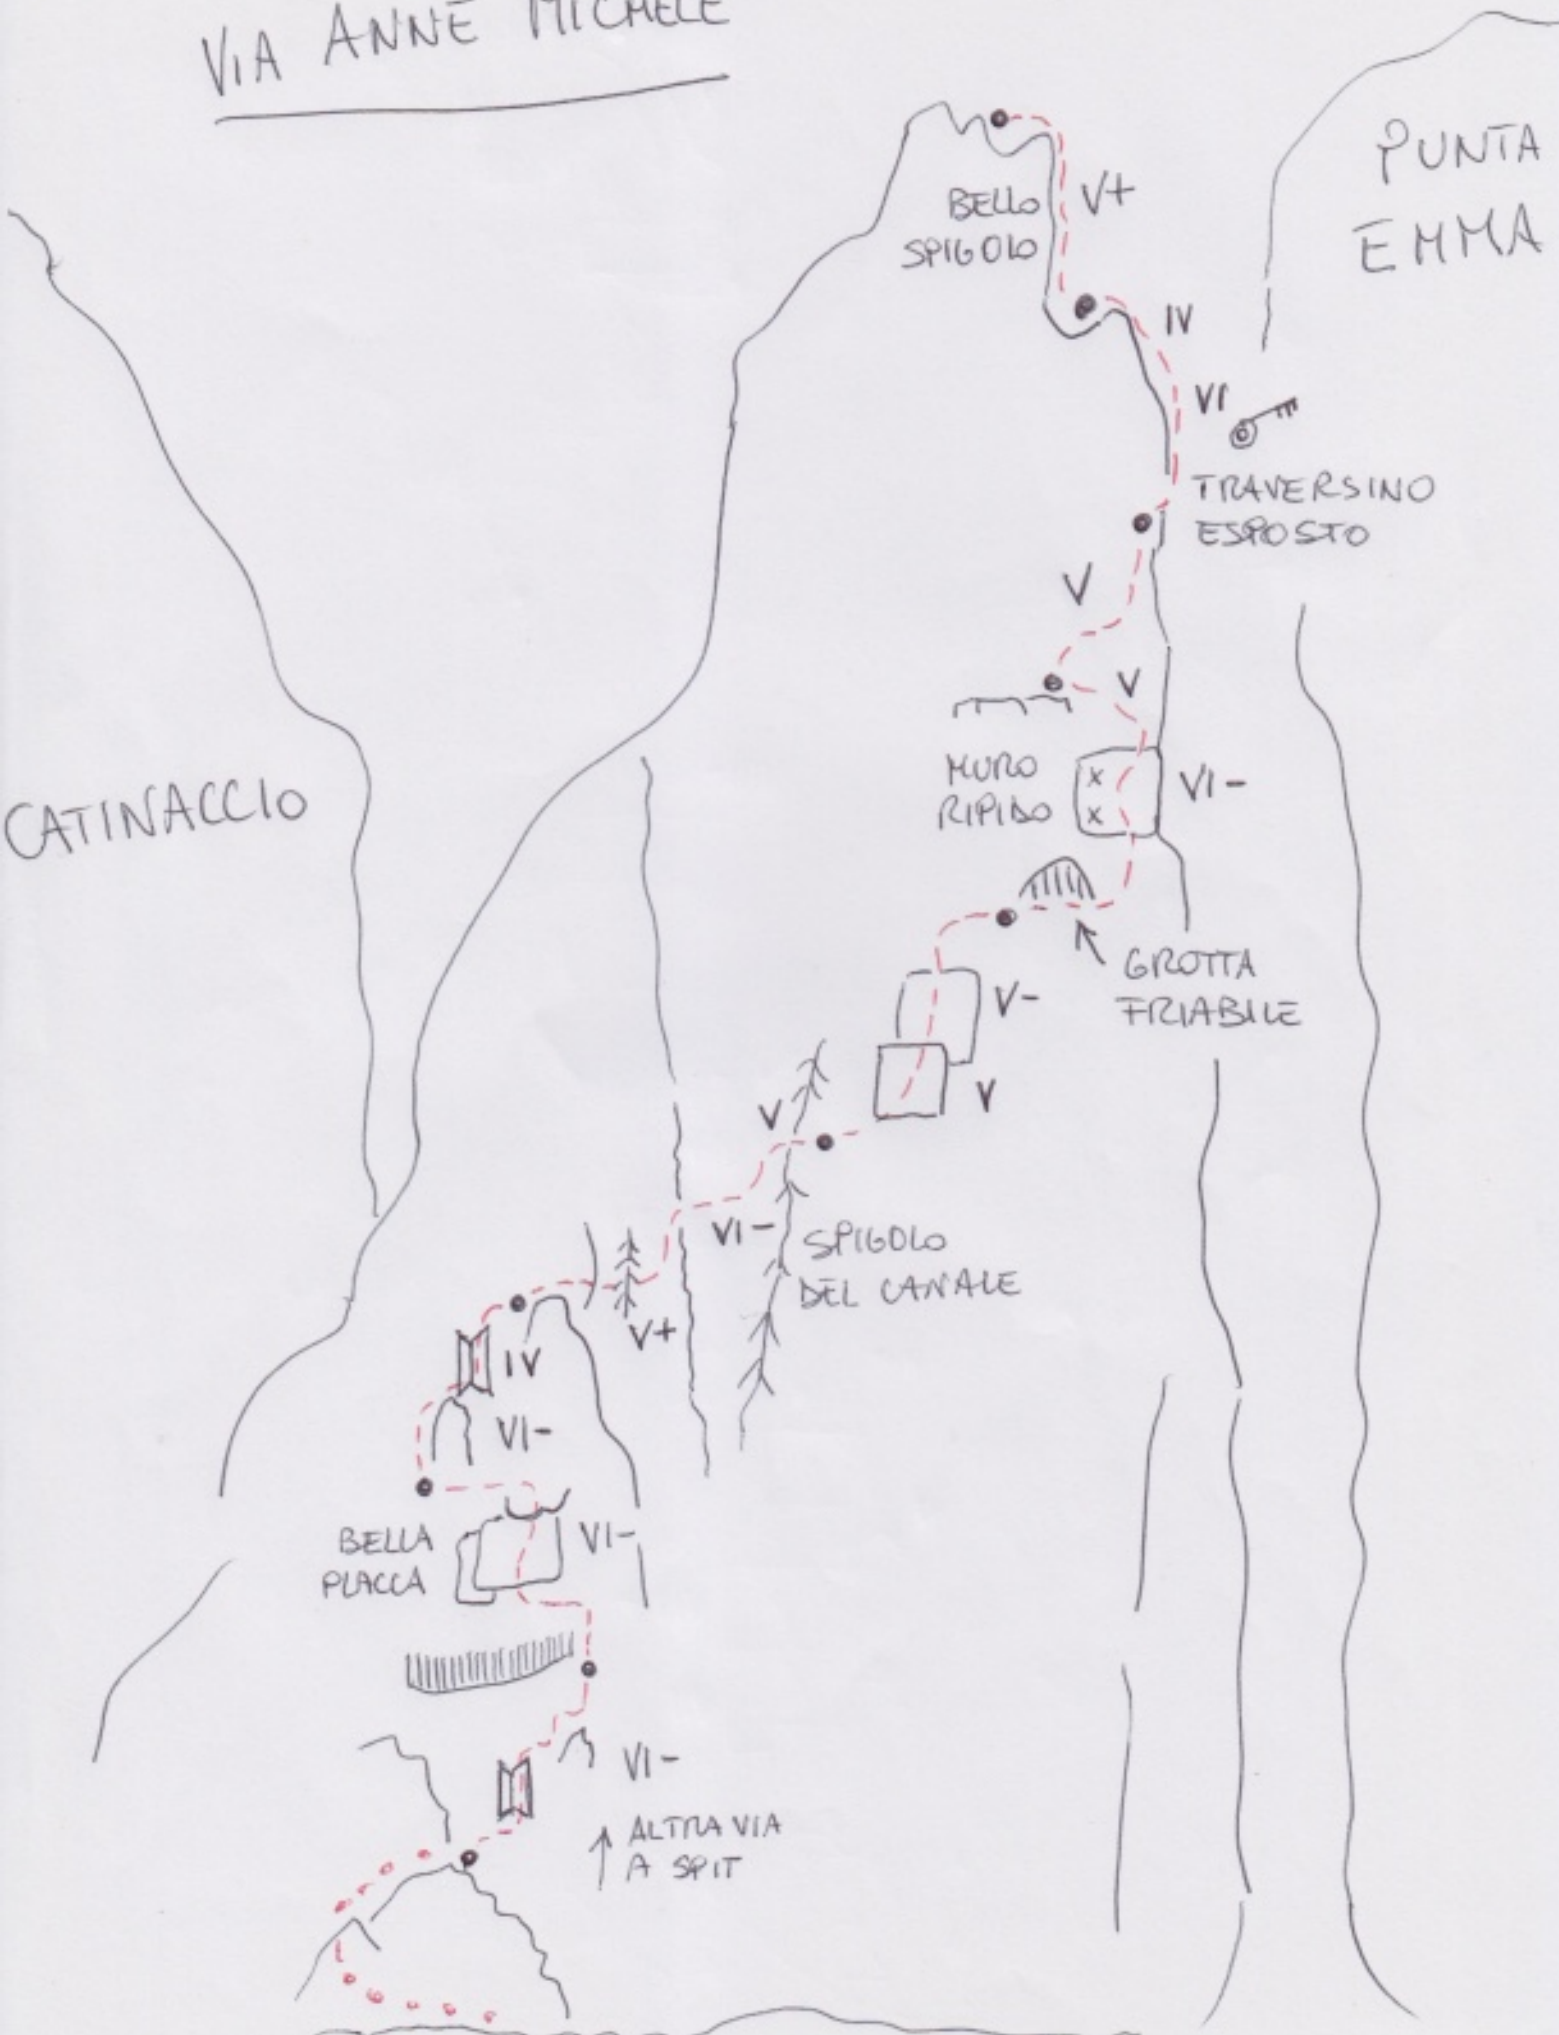 VIA ANNE MICHELE
PUNTA
EMMA
V+
BELLO
SPIGOLO
IV
VI
TRAVERSINO
ESPOSTO
V
V
MURO
RIPIDO
VI-
CATINACCIO
GROTTA
FRIABILE
V-
V
V
VI-
SPIGOLO
DEL CANALE
V+
IV
VI-
BELLA
PLACCA
VI-
VI-
ALTRA VIA
A SPIT